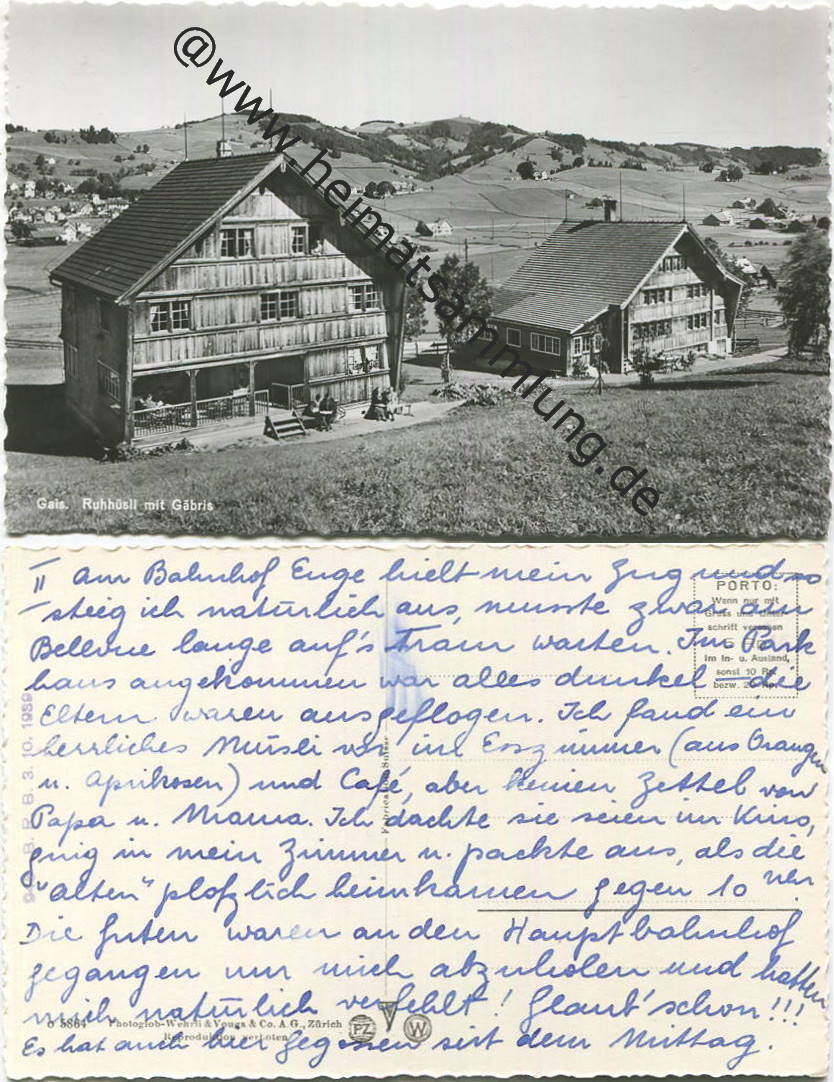 @www.heimatsammlung.de
Gais. Ruhhüsli mit Gäbris
II am Bahnhof Enge hielt mein Zug und so
steig ich natürlich aus, musste zwar am
Bellevue lange auf's Tram warten. Im Park
haus angekommen war alles dunkel – die
Eltern waren ausgeflogen. Ich fand ein
herrliches Müsli vor im Esszimmer (aus Orangen
u. Aprikosen) und Café, aber keinen Zettel von
Papa u. Mama. Ich dachte sie seien im Kino,
ging in mein Zimmer u. packte aus, als die
"alten" plötzlich heimkamen gegen 10 Uhr
Die guten waren an den Hauptbahnhof
gegangen um mich abzuholen und hatten
mich natürlich verfehlt! Glaub' schon!!!
Es hat auch hier gegossen seit dem Mittag.
PORTO:
Wenn nur mit
Gruss und Unter-
schrift versehen
im In- u. Ausland,
sonst 10 Rp.
bezw. 20
B. P. B. 3. 10. 1939
Fabriqué en Suisse
O 5864 Photoglob-Wehrli & Vouga & Co. A. G., Zürich
Reproduktion verboten
PZ
V
W